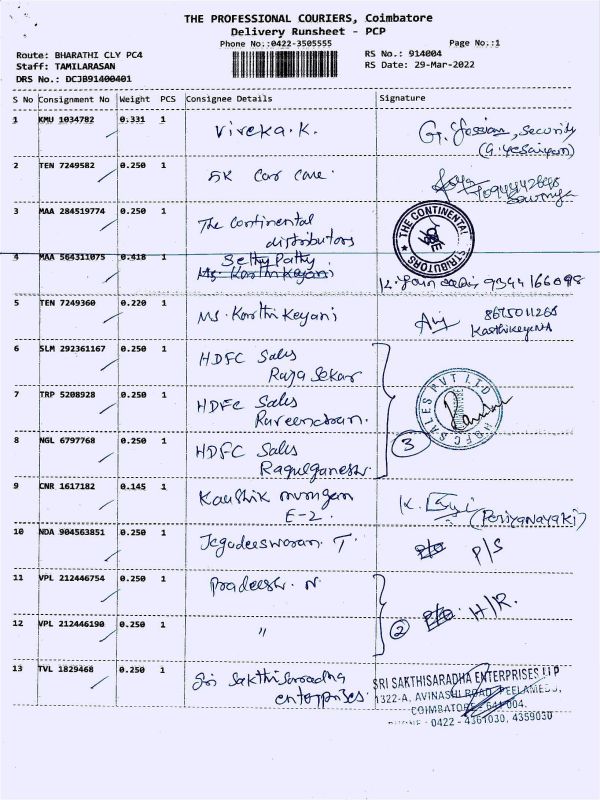 THE PROFESSIONAL COURIERS, Coimbatore
Delivery Runsheet - PCP
Phone No.:0422-3505555
Page No.:1
Route: BHARATHI CLY PC4
RS No.: 914004
Staff: TAMILARASAN
RS Date: 29-Mar-2022
DRS No.: DCJB91400401
S No Consignment No Weight PCS Consignee Details Signature
1 KMU 1034782 0.331 1 Viveka.K. Security
2 TEN 7249582 0.250 1 SK Car Care. Sowmya
3 MAA 284519774 0.250 1 The Continental
distributors
THE CONTINENTAL DISTRIBUTORS
4 MAA 564311075 0.418 1 Setty Patty
Ms. Karthikeyani 9344166098
5 TEN 7249360 0.220 1 Ms. Karthikeyani
6 SLM 292361167 0.250 1 HDFC Sales
Raja Sekar
7 TRP 5208928 0.250 1 HDFC Sales
Raveendran.
HDFC SALES PVT LTD
8 NGL 6797768 0.250 1 HDFC Sales 3
Ragulganesh.
9 CNR 1617182 0.145 1 Kaushik murugan K.
E-2. (Periyanayaki)
10 NDA 904563851 0.250 1 Jegadeeswaran. T. P/S
11 VPL 212446754 0.250 1 Pradeesh. N H/R.
12 VPL 212446190 0.250 1 " 2
13 TVL 1829468 0.250 1 Sri Sakthisaradha
enterprises.
SRI SAKTHISARADHA ENTERPRISES LLP
1322-A, AVINASHI ROAD, PEELAMEDU,
COIMBATORE - 641 004.
PHONE : 0422 - 4361030, 4359030